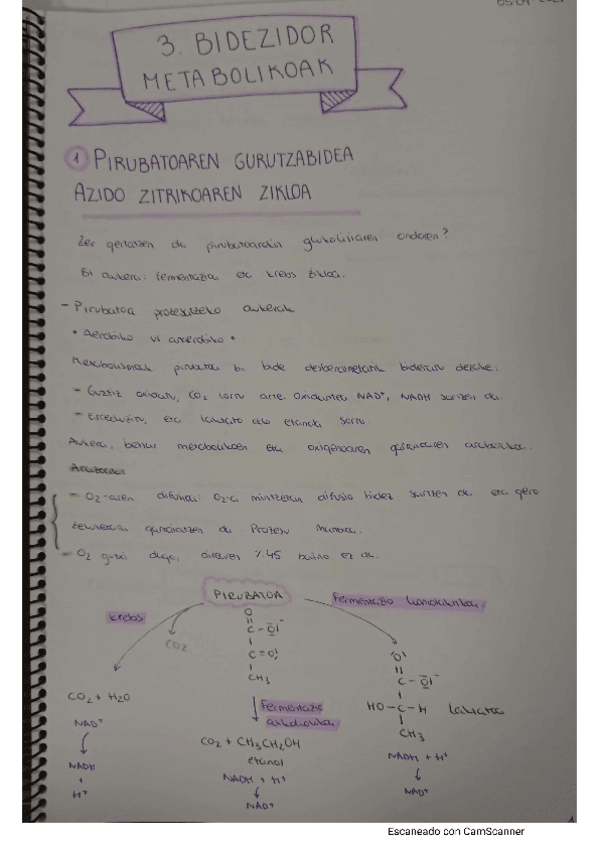 3. BIDEZIDOR
METABOLIKOAK
1 PIRUBATOAREN GURUTZABIDEA
AZIDO ZITRIKOAREN ZIKLOA
Zer gertatzen da pirubatoarekin glukolisiaren ondoren?
Bi aukera: fermentazioa eta krebs zikloa.
- Pirubatoa prozesatzeko aukerak
• Aerobiko vs anaerobiko •
Metabolismoak pirubatoa bi bide desberdinetatik bideratu dezake:
- Guztiz oxidatu, CO2 sortu arte. Oxidatzen NAD+, NADH sortzen da.
- Erreduzitu, eta laktato edo etanola sortu.
Aukera, behar metabolikoen eta oxigenoaren arabera.
- O2-aren difusioa: O2-a mintzetan difusio bidez sartzen da eta gero
da. Prozesu
- O2 gutxi dago, airearen %45 baino ez da.
PIRUBATOA
Fermentazio
krebs
CO2
O
C - O⁻
C = O
CH3
O
C - O⁻
HO - C - H Laktatoa
CH3
CO2 + H2O
NAD+
NADH
+
H+
Fermentazio
alkoholikoa
CO2 + CH3CH2OH
etanol
NADH + H+
NAD+
NADH + H+
NAD+
Escaneado con CamScanner